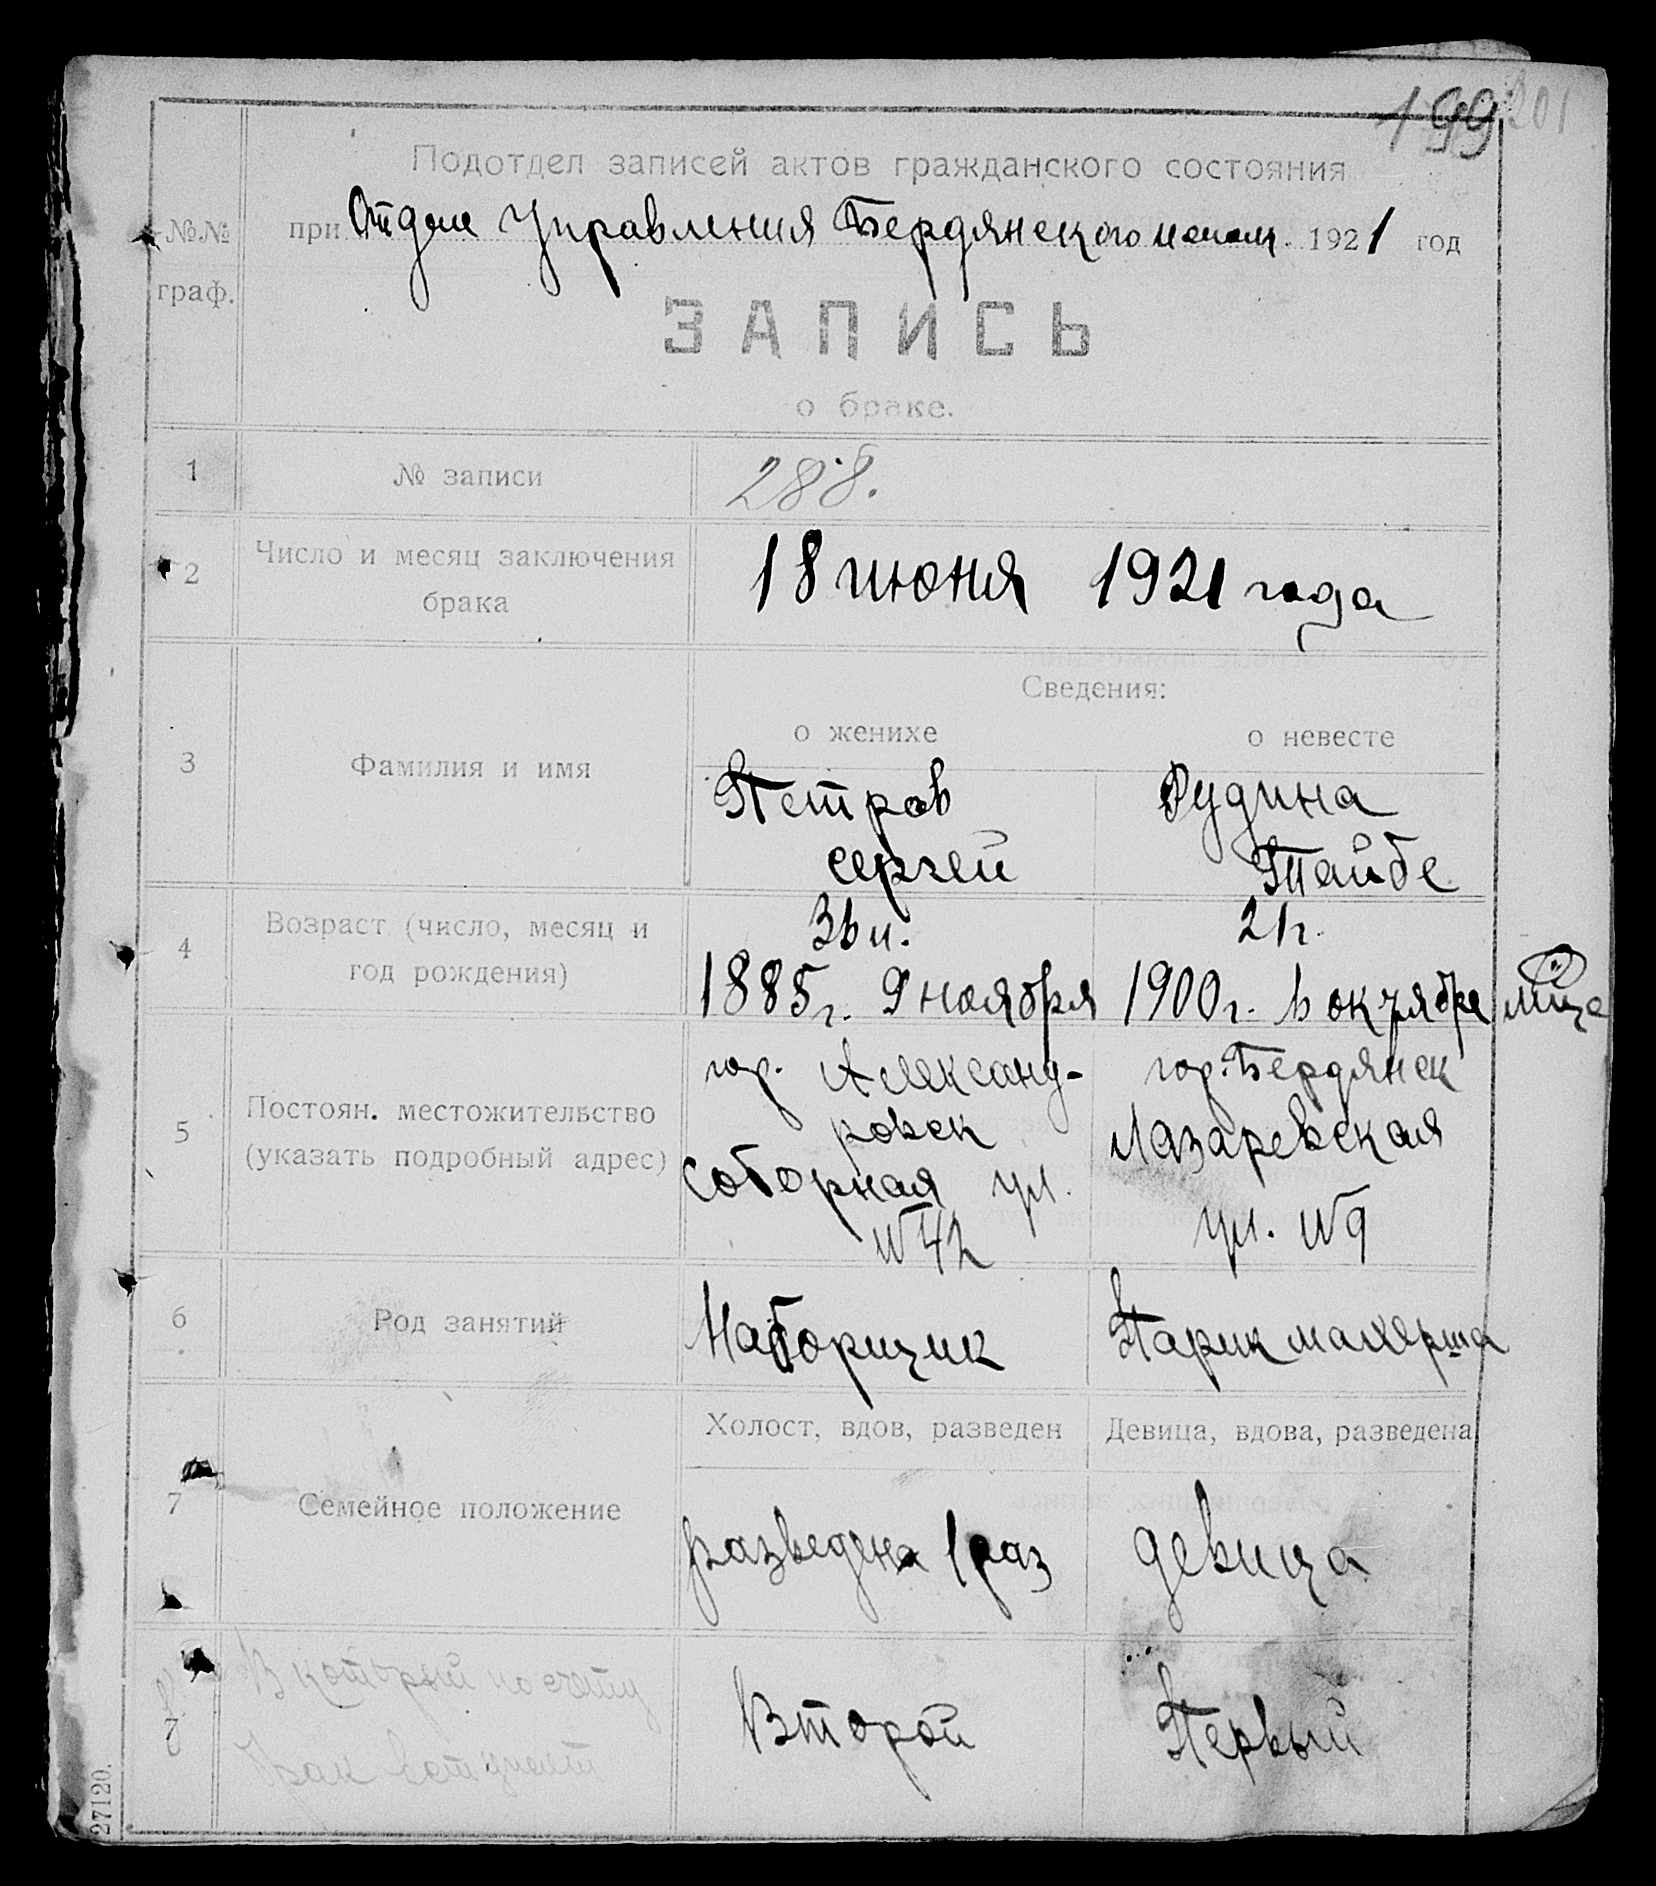 199 201
Подотдел записей актов гражданского состояния
№№ при Отделе Управления Бердянского 1921 год
граф.
ЗАПИСЬ
о браке.
1 № записи 288.
2 Число и месяц заключения брака 18 июня 1921 года
Сведения:
о женихе о невесте
3 Фамилия и имя Петров Рудина
Сергей Тайбе
4 Возраст (число, месяц и год рождения) 36 л. 21 г.
1885 г. 9 ноября 1900 г. 6 октября
5 Постоян. местожительство (указать подробный адрес)
гор. Александ- гор. Бердянск
ровск Лазаревская
Соборная ул. ул. №9
№42
6 Род занятий Наборщик Парикмахерша
Холост, вдов, разведен Девица, вдова, разведена
7 Семейное положение разведен 1 раз девица
8 В который по счету Второй Первый
брак вступает
27120.